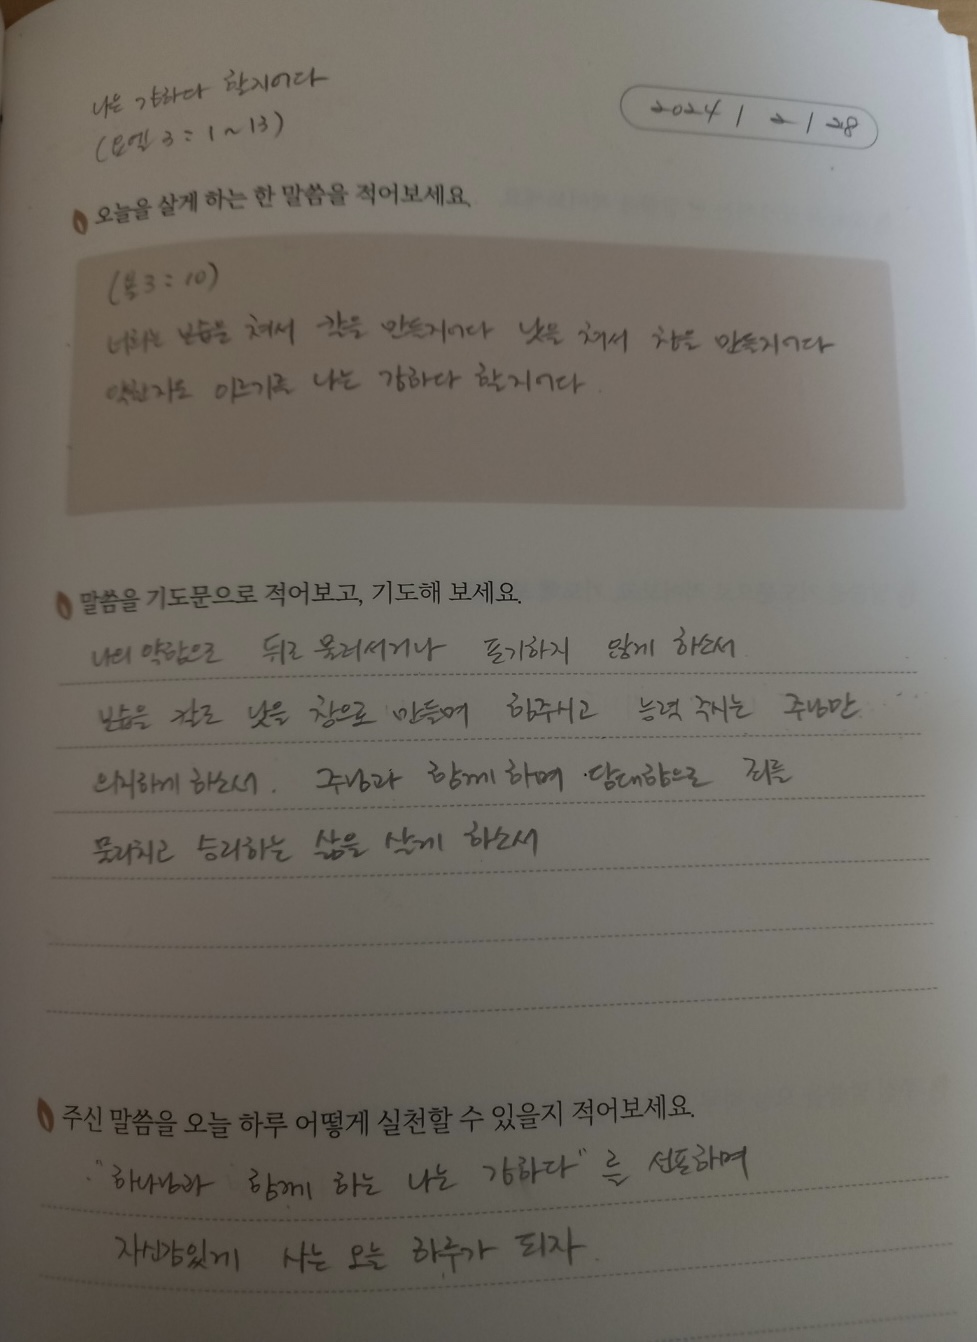 나는 강하다 할지어다
(요엘 3:1~13)
2024 / 2 / 28
오늘을 살게 하는 한 말씀을 적어보세요.
(욜3:10)
너희는 보습을 쳐서 칼을 만들지어다 낫을 쳐서 창을 만들지어다
약한자도 이르기를 나는 강하다 할지어다.
말씀을 기도문으로 적어보고, 기도해 보세요.
나의 약함으로 뒤로 물러서거나 포기하지 않게 하소서
보습을 칼로 낫을 창으로 만들며 힘주시고 능력 주시는 주님만
의지하게 하소서. 주님과 함께 하며 담대함으로 죄를
물리치고 승리하는 삶을 살게 하소서
주신 말씀을 오늘 하루 어떻게 실천할 수 있을지 적어보세요.
"하나님과 함께 하는 나는 강하다"를 선포하며
자신감있게 사는 오늘 하루가 되자.